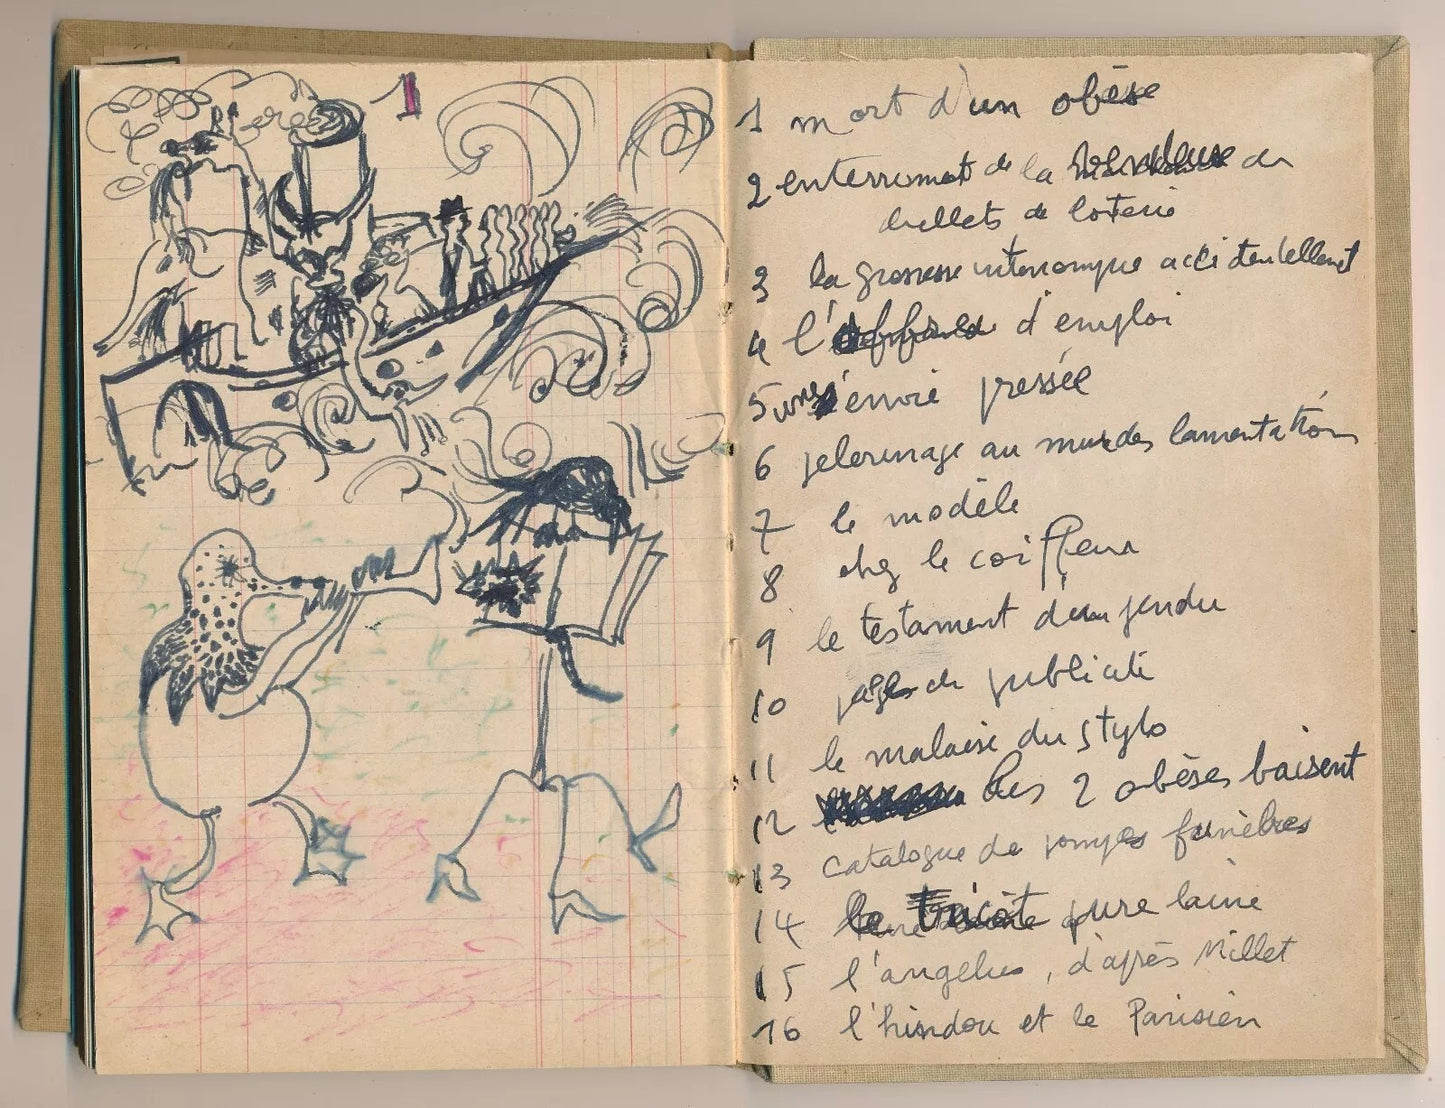 1
1 mort d'un obèse
2 enterrement de la vendeuse de
billets de loterie
3 la grossesse interrompue accidentellement
4 l' d'emploi
5 une envie pressée
6 pelerinage au mur des lamentations
7 le modèle
8 chez le coiffeur
9 le testament d'un pendu
10 pages de publicité
11 le malaise du stylo
12 les 2 obèses baisent
13 catalogue de pompes funèbres
14 le tricot pure laine
15 l'angelus, d'après Millet
16 l'hindou et le Parisien